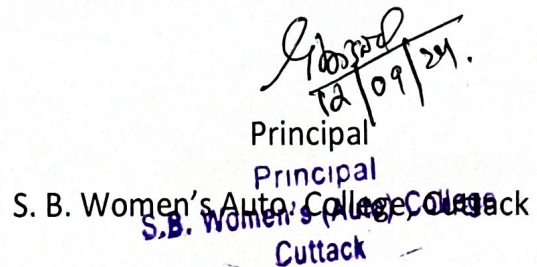 12/09/24.
Principal
Principal
S. B. Women's Auto. College, Cuttack
S.B. Women's (Auto) College
Cuttack